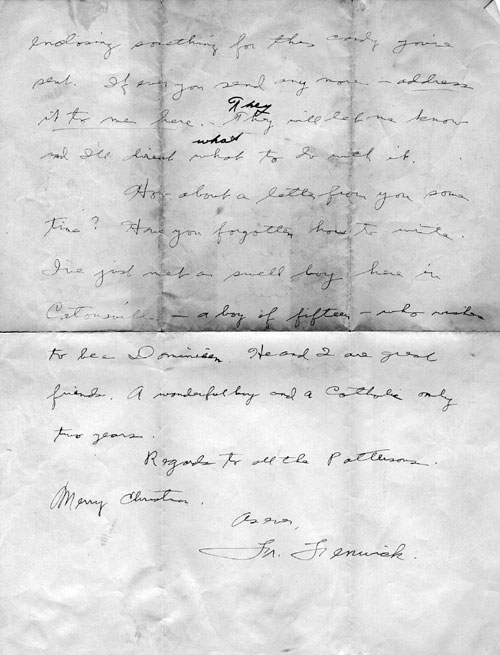 enclosing something for this candy you've
sent. If ever you send any more - address
it to me here. They will let me know
They
and I'll direct what to do with it.
what
How about a letter from you some
time? Have you forgotten how to write.
I've just met a swell boy here in
Catonsville - a boy of fifteen - who wishes
to be a Dominican He and I are great
friends. A wonderful boy and a Catholic only
two years.
Regards to all the Pattersons.
Merry Christmas.
As ever,
Fr. Fenwick.